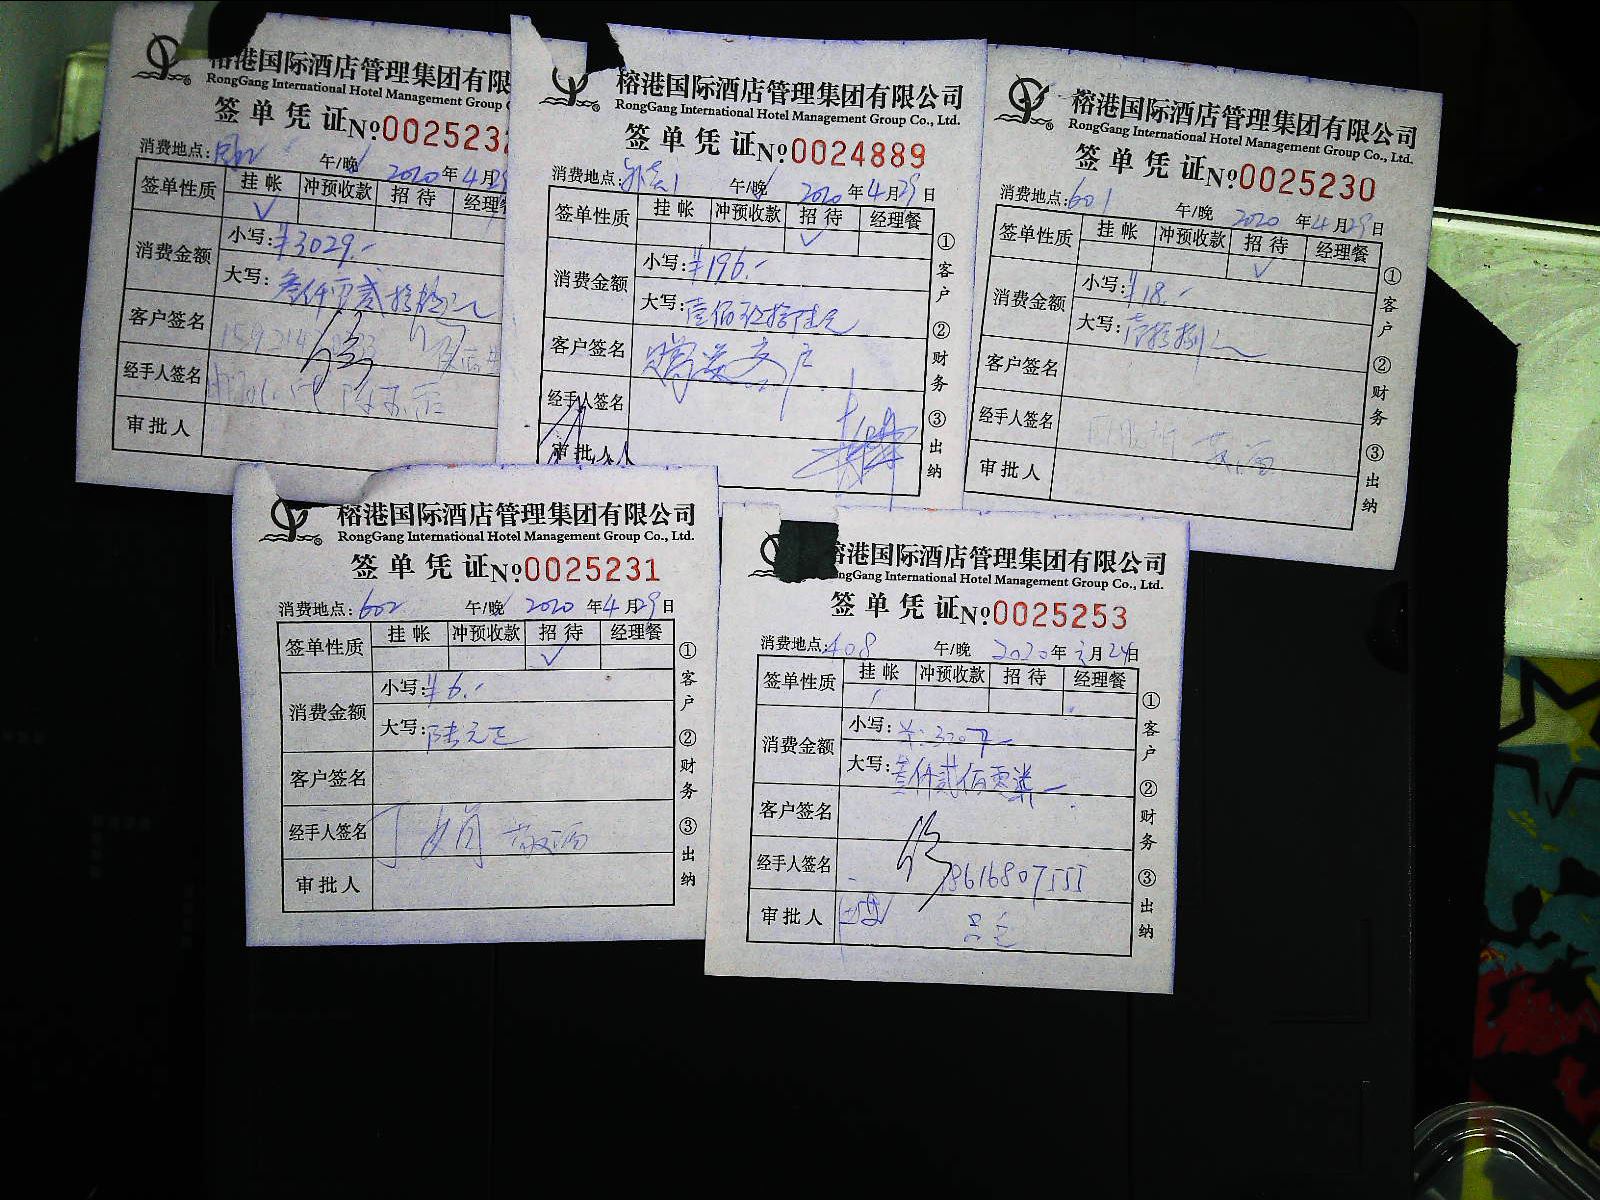 榕港国际酒店管理集团有限
RongGang International Hotel Management Group
签单凭证№002523
消费地点: 午/晚 2020年4月29
签单性质 挂帐 冲预收款 招待 经理
消费金额 小写:¥3029.-
大写:叁仟零贰拾玖元
客户签名
经手人签名
审批人
榕港国际酒店管理集团有限公司
RongGang International Hotel Management Group Co., Ltd.
签单凭证№0024889
消费地点: 午/晚 2020年4月29日
签单性质 挂帐 冲预收款 招待 经理餐
消费金额 小写:¥196.-
大写:壹佰玖拾陆元
客户签名
经手人签名
审批人
①客户 ②财务 ③出纳
榕港国际酒店管理集团有限公司
RongGang International Hotel Management Group Co., Ltd.
签单凭证№0025230
消费地点:601 午/晚 2020年4月29日
签单性质 挂帐 冲预收款 招待 经理餐
消费金额 小写:¥18.-
大写:壹拾捌元
客户签名
经手人签名
审批人
①客户 ②财务 ③出纳
榕港国际酒店管理集团有限公司
RongGang International Hotel Management Group Co., Ltd.
签单凭证№0025231
消费地点:602 午/晚 2020年4月29日
签单性质 挂帐 冲预收款 招待 经理餐
消费金额 小写:¥6.-
大写:陆元正
客户签名
经手人签名 丁娟
审批人
①客户 ②财务 ③出纳
榕港国际酒店管理集团有限公司
ngGang International Hotel Management Group Co., Ltd.
签单凭证№0025253
消费地点:408 午/晚 2020年 月24日
签单性质 挂帐 冲预收款 招待 经理餐
消费金额 小写:¥:3207
大写:叁仟贰佰零柒
客户签名
经手人签名 18616807555
审批人
①客户 ②财务 ③出纳